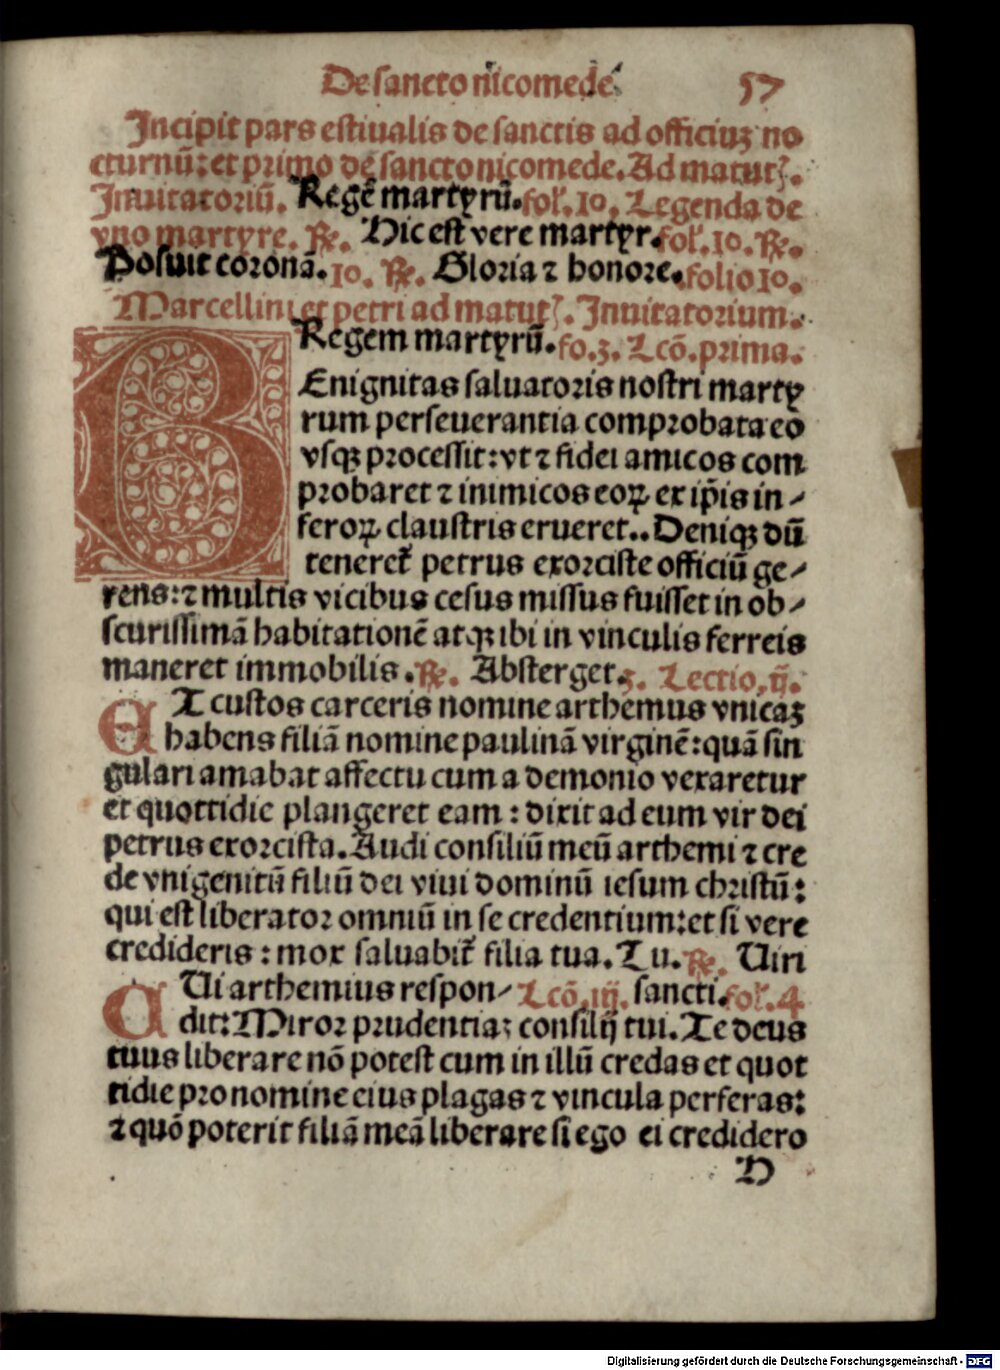 De sancto nicomede 57
Incipit pars estiualis de sanctis ad officiuꝫ no
cturnū: et primo de sancto nicomede. Ad matutꝭ.
Inuitatoriū. Regē martyrū. fol. 10. Legenda de
vno martyre. ℟. Hic est vere martyr. fol. 10. ℟.
Posuit coronā. 10. ℟. Gloria ⁊ honore. folio 10.
Marcellini et petri ad matutꝭ. Inuitatorium.
Regem martyrū. fo. 3. Lcō. prima.
BEnignitas saluatoris nostri marty
rum perseuerantia comprobata eo
vsqꝫ processit: vt ⁊ fidei amicos com
probaret ⁊ inimicos eoꝝ ex ip̄is in-
feroꝝ claustris erueret.. Deniqꝫ dū
teneret̄ petrus exorciste officiū ge-
rens: ⁊ multis vicibus cesus missus fuisset in ob-
scurissimā habitationē atqꝫ ibi in vinculis ferreis
maneret immobilis. ℟. Absterget. 3. Lectio. ij.
ET custos carceris nomine arthemus vnicaꝫ
habens filiā nomine paulinā virginē: quā sin
gulari amabat affectu cum a demonio vexaretur
et quottidie plangeret eam: dixit ad eum vir dei
petrus exorcista. Audi consiliū meū arthemi ⁊ cre
de vnigenitū filiū dei viui dominū iesum christū:
qui est liberator omniū in se credentium: et si vere
credideris: mox saluabit̄ filia tua. Tu. ℟. Uiri
CUi arthemius respon- Lcō. iij. sancti. fol. 4
dit: Miror prudentiaꝫ consilij tui. Te deus
tuus liberare nō potest cum in illū credas et quot
tidie pro nomine eius plagas ⁊ vincula perferas:
⁊ quō poterit filiā meā liberare si ego ei credidero
H
Digitalisierung gefördert durch die Deutsche Forschungsgemeinschaft - DFG